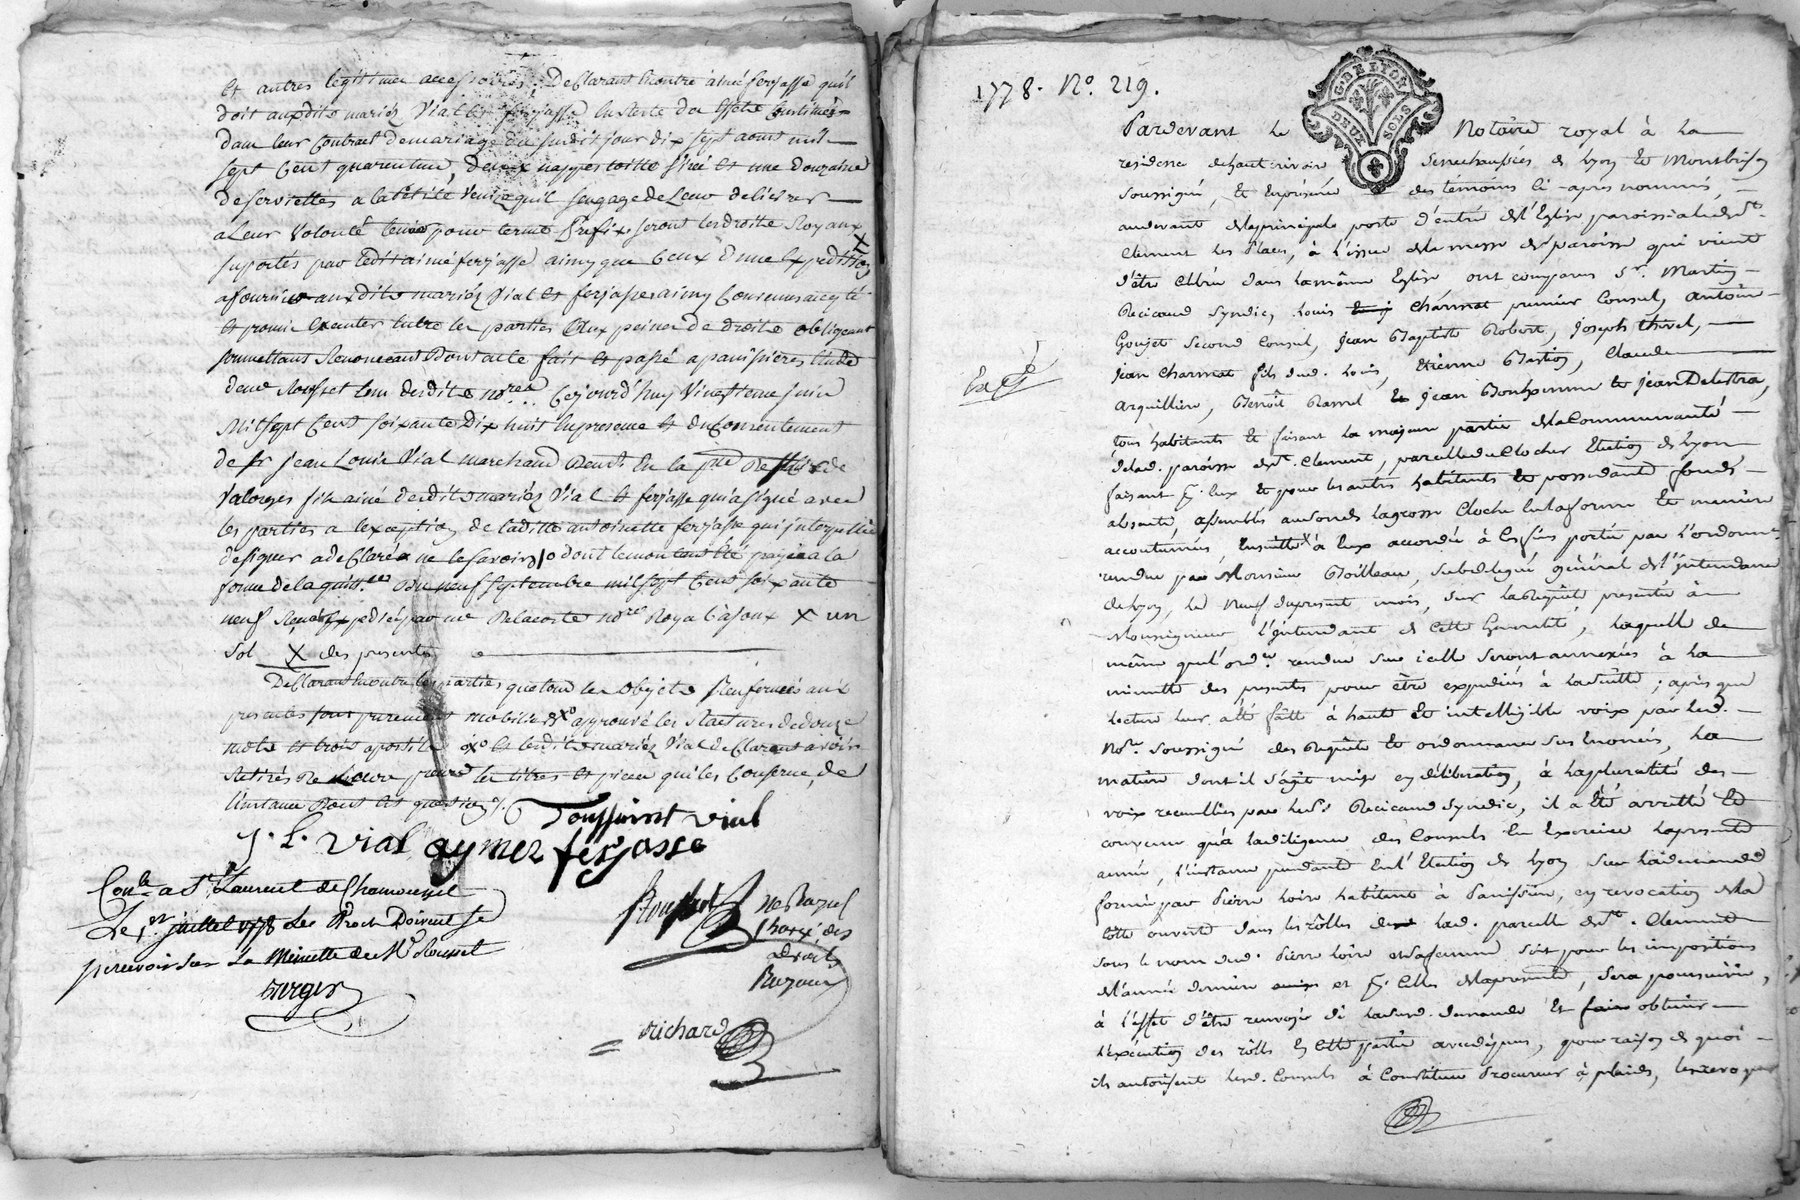 et autres legitimes accessoires, Declarant encore aimé ferjasse quil
doit auxdits mariés Vial et ferjasse le reste des effets Constitués
dans leur Contract de mariage du susdit jour dix sept aoust mil
sept Cent quarente un, deux nappes et une douzaine
de serviettes quil s'engage de Leur delivrer
a Leur Volonté pour terme Prefix seront les droits Royaux
suportés par ledit aimé ferjasse ainsy que Ceux d'une Expedition X
a fournir auxdits mariés Vial et ferjasse ainsy Convenus accepté
et promis Executer entre les parties aux peines de droits obligeant
soumettant Renonceant Dont acte fait et passé a panissieres Etude
dem.e Rousset lun desdits no.res Cejourd'huy Vingtieme juin
Mil sept Cent soixante Dix huit En presence et du Consentement
de sr jean Louis Vial marchand Dem.t En la p.sse de
Valorges fils ainé desdits mariés Vial et ferjasse qui a signé avec
les parties a l'exception de ladite antoinette ferjasse qui interpellée
de signer a declaré ne le savoir dont le montant été payé a la
forme de la quitt.ce Du neuf septembre mil sept Cent soixante
neuf par me Delacoste no.re Royal à X un
sol X des presentes
Declarant en outre les parties que tous les objets Renfermés aux
presentes sont purement mobiliers approuvé les Ratures de douze
mots et trois apostils et lesdits mariés Vial declarent avoir
Retirés les titres et pieces qui les Conserne, de
l'instance dont est question /.
Toussaint vial
J. L. vial aymez ferjasse
Con.lé a St. Laurent de Chamousset
Le 1.er juillet 1778 Les Droits Doivent se
percevoir sur La Minutte de M.e Rousset
Rousset no.re Royal
Chargé des
droits
Royaux
Richard
1778. N.o 219.
G. DE LYON
DEUX SOLS
Pardevant Le Notaire royal à la
residence de haut rivoire Senechaussées de Lyon et Montbrison
Soussigné, et En presence des témoins Ci-apres nommés
audevant de la principale porte d'entrée de l'Eglise paroissiale de St.
Clement les Places, à l'issue de la messe de paroisse qui vient
d'être Célébrée dans la même Eglise ont comparus Sr. Martin
Recicaud Syndic, Louis Charmet premier Consul, antoine
Goujet second Consul, Jean Baptiste Robert, Joseph thivel,
Jean Charmet fils dud. Louis, Etienne Bastion, Claude
Arquilliere, Benoît Ramel et Jean Bonhomme et Jean Delestra,
tous habitants et faisant la majeure partie de la Communauté
de lad. paroisse de St. Clement, parcelle du Clocher Election de Lyon
faisant p. Eux et pour les autres habitants et possedants fonds
absents, assemblés au son de la grosse Cloche en la forme et maniere
accoutumées, Ensuitte à Eux accordée à Ces fins portée par l'ordonn.ce
rendue par Monsieur Boilleau, subdelegué général de l'Intendance
de Lyon, le neuf du present mois, sur la Requête presentée à
Monseigneur l'Intendant de Cette Generalité, laquelle de
même que l'ord.ce rendue sur icelle seront annexées à la
minutte des presentes pour être expediées à la suitte ; après que
lecture leur a été faitte à haute et intelligible voix par led.
No.re soussigné des Requête et ordonnance sus Enoncées, la
matiere dont il s'agit mise en délibération, à la pluralité des
voix recueillies par led. Sr. Recicaud Syndic, il a été arretté et
convenu qu'à la diligence des Consuls En Exercice la presente
année, l'instance pendante En l'Election de Lyon sur la demande
formée par Pierre Loire habitant à Panissiere, en revocation de la
Côtte ouverte dans les rôlles de lad. parcelle de St. Clement
sous le nom dud. Pierre Loire et sa femme soit pour les impositions
de l'année derniere et p. Celles de la presente, sera poursuivie,
à l'effet d'être renvoyés de lad. demande et faire obtenir
l'exécution des rôlles En Cette partie avec dépens, pour raison de quoi
ils autorisent lesd. Consuls à Constituer Procureur à plaids,